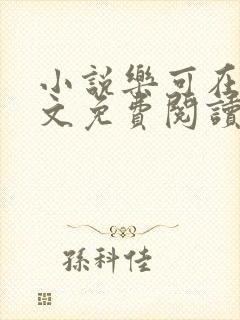 小説樂可在
文免費閱讀
孫科佳